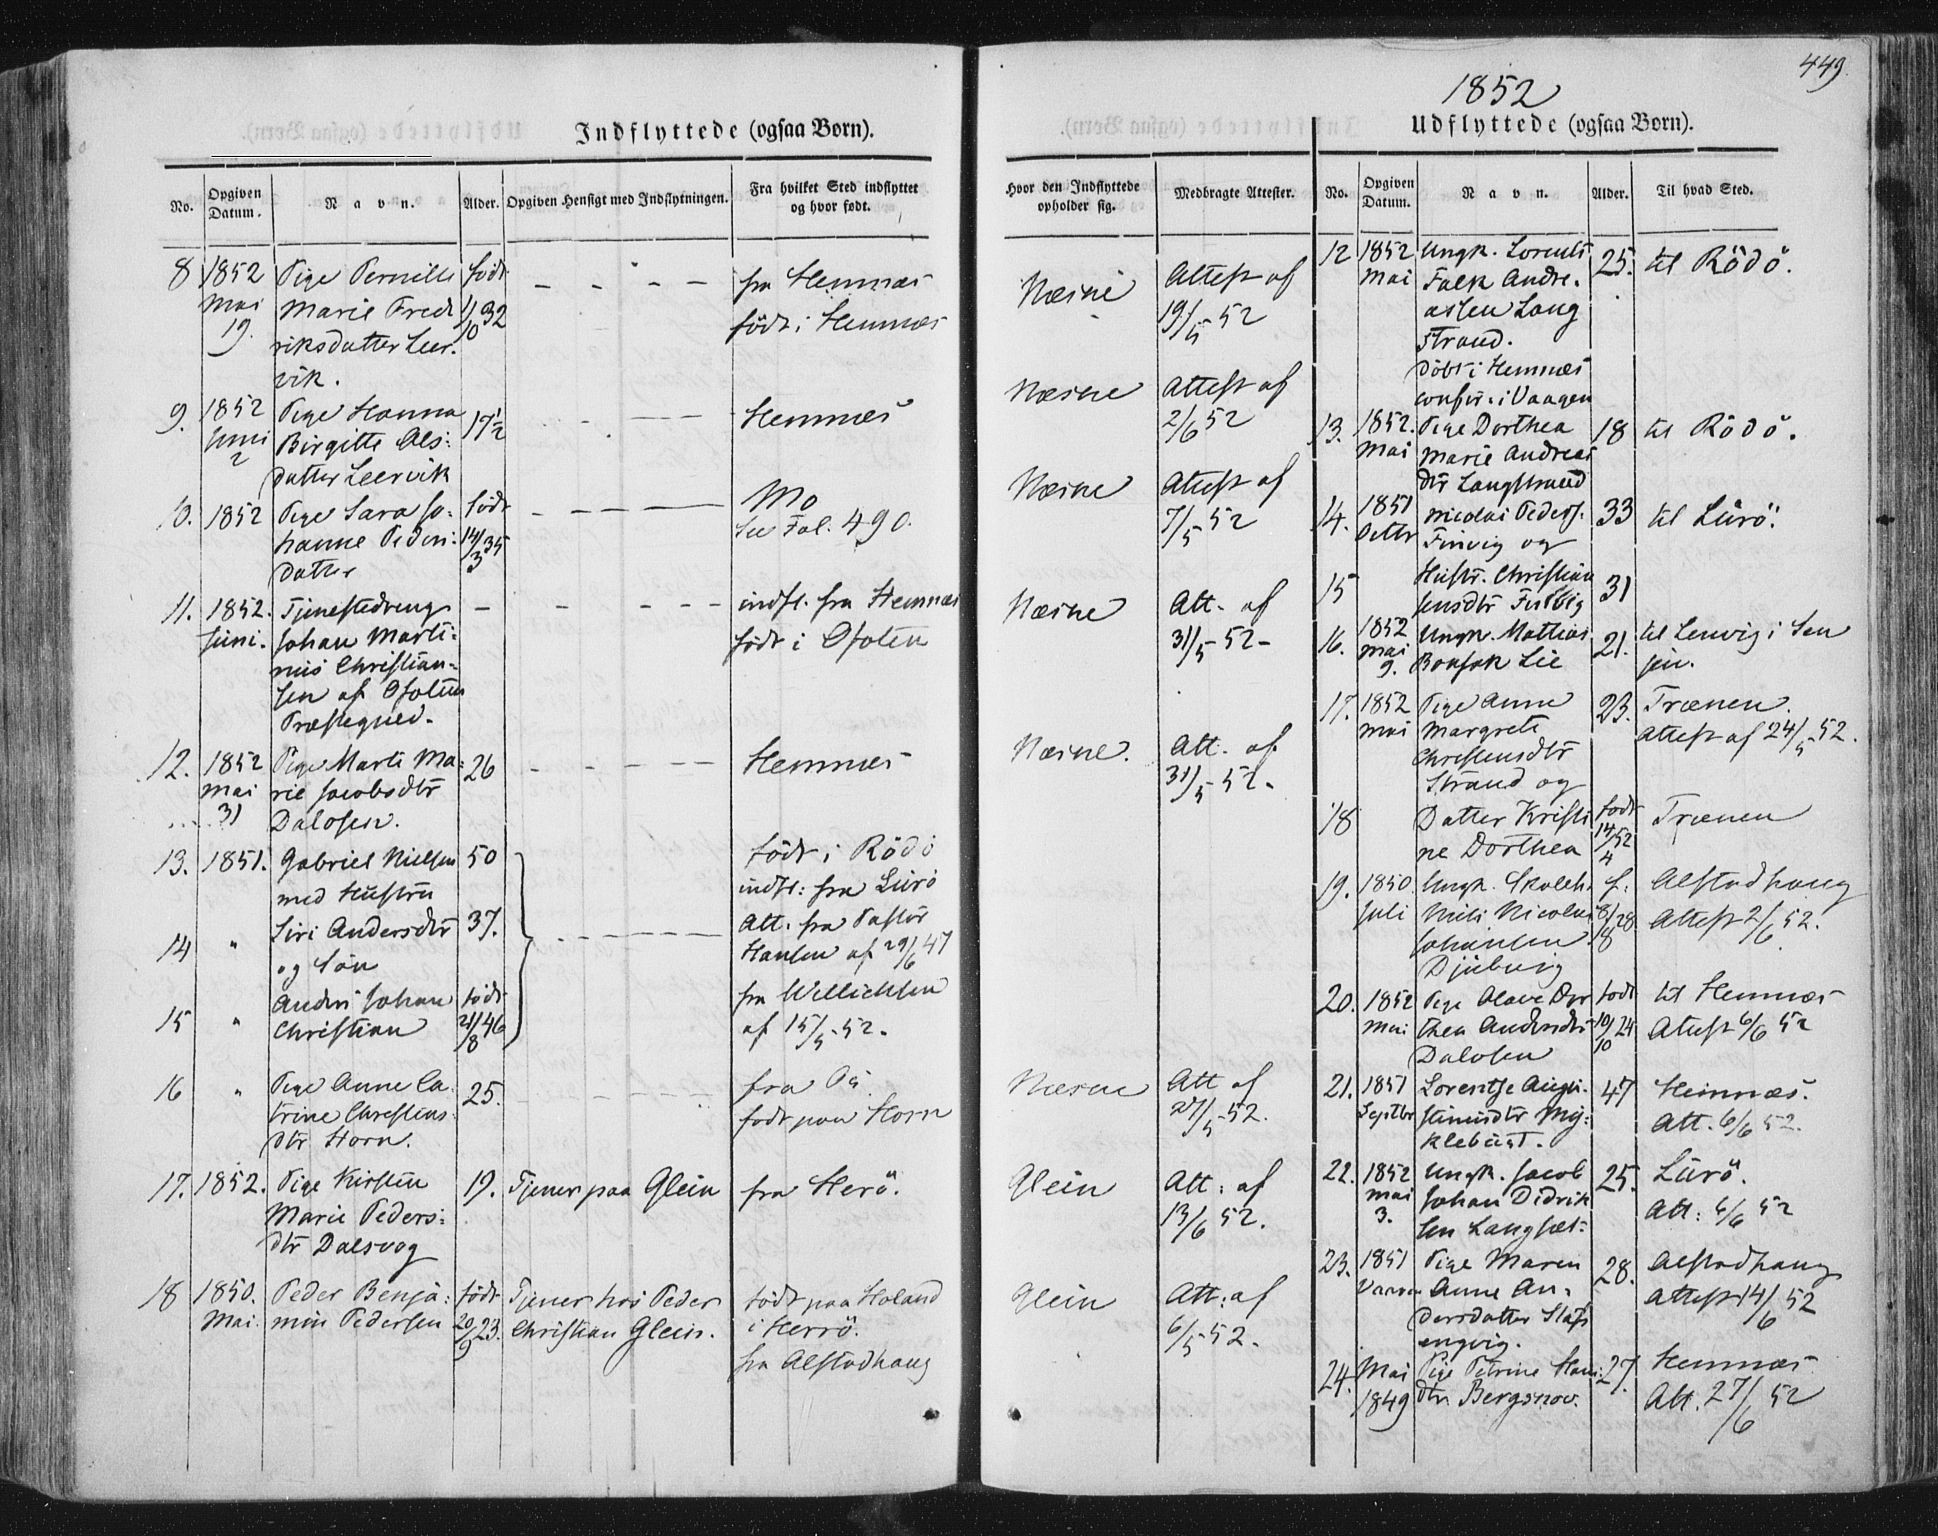 449.
1852
Indflyttede (ogsaa Børn).
No.
Opgiven Datum.
Navn.
Alder.
Opgiven Hensigt med Indflytningen.
Fra hvilket Sted indflyttet og hvor født.
Hvor den Indflyttede opholder sig.
Medbragte Attester.
8 1852 Pige Pernille født - - - - fra Hemnæs Næsne Attest af
Mai Marie Fred 1/10 32 født i Hemnæs 19/5 52
19. riksdatter Leer-
vik.
9. 1852 Pige Hanna 17½ - - - Hemnæs Næsne Attest af
Juni Birgitte Ols: 2/6 52
2 datter Leervik
10. 1852 Pige Sara Jo- født - - - - Mo Næsne Attest af
hanne Peders: 14/3 35 See Fol. 490. 7/5 52
datter
11. 1852. Tjenestedreng - - - - indfl. fra Hemnæs Næsne Att. af
Juni. Johan Marti: født i Ofoten 31/5 52-
nus Christian-
sen af Ofoten
Præstegjeld.
12. 1852 Pige Marti Ma: 26 - - - - Hemnæs Næsne. Att. af
Mai rie Jacobsdtr 31/5 52.
31 Dalosen.
13. 1851. Gabriel Nielsen 50 født i Rödö
med Hustru indfl: fra Lurö
14 " Siri Andersdtr 37. - - - - Att. fra Pastor
og Søn Hansen af 29/6 47
Anders Johan født fra Wellichsen
15 " Christian 21/8 46 af 15/5 52.
16 " Pige Anne Ca- 25. - - - - fra Næsne Att af
trine Christens- født paa Horn 27/5 52.
dtr Horn.
17. 1852. Pige Kirsten 19. Tjener paa Glein fra Herö. Glein Att: af
Marie Peders: 13/6 52.
dtr Dalsvog
18 1850. Peder Benja: født Tjener hos Peder født paa Holand Glein Att: af
Mai. min Pedersen 20/9 23. Christian Glein. i Herrö. 6/5 52.
fra Alstadhaug
Udflyttede (ogsaa Børn).
No.
Opgiven Datum.
Navn.
Alder.
Til hvad Sted.
12 1852 Ungk. Lorents 25. til Rödö.
Mai Falk Andre-
assen Lang
strand.
döbt i Hemnæs
confir. i Vaagen
13. 1852. Pige Dorthea 18 til Rödö.
Mai Marie Andreas
dtr Langstrand
14. 1851 Nicolai Peders. 33 til Lurö.
Octbr Finvig og
15 Hustr. Christian 31
sensdtr Finvig
16. 1852 Ungk. Mathias 21. til Lenvig i Sen
Mai Lie jen.
9.
17. 1852 Pige Anne 23. Trænen.
Mai Margrete Attest af 24/5 52.
Christensdtr
Strand og
18 Datter Kristi født Trænen
ne Dorthea 14/4 52
19. 1850 Ungk. f. Alstadhaug
Juli Nicolai 8/8 28 Attest 2/6 52.
Johansen
Djubvig
20. 1852 Pige Olave Dor født til Hemnæs
Mai thea Andersdtr 10/10 24 Attest 6/6 52
Dalosen
21. 1851 Lorentse Augu- 47 Hemnæs.
Septbr stinusdtr My: Att. 6/6 52.
klebust.
22. 1852 Ungk. Jacob 25. Lurö.
Mai Johan Didrik Att: 6/6 52
3. sen Langsæt-
23. 1851 Pige Maren 28. Alstadhaug
Anne An- Attest 14/6 52
dersdatter
24. Mai Pige Petrine Hans: 27. Hemnæs
1849 dtr. Bergsnov. Att. 27/6 52